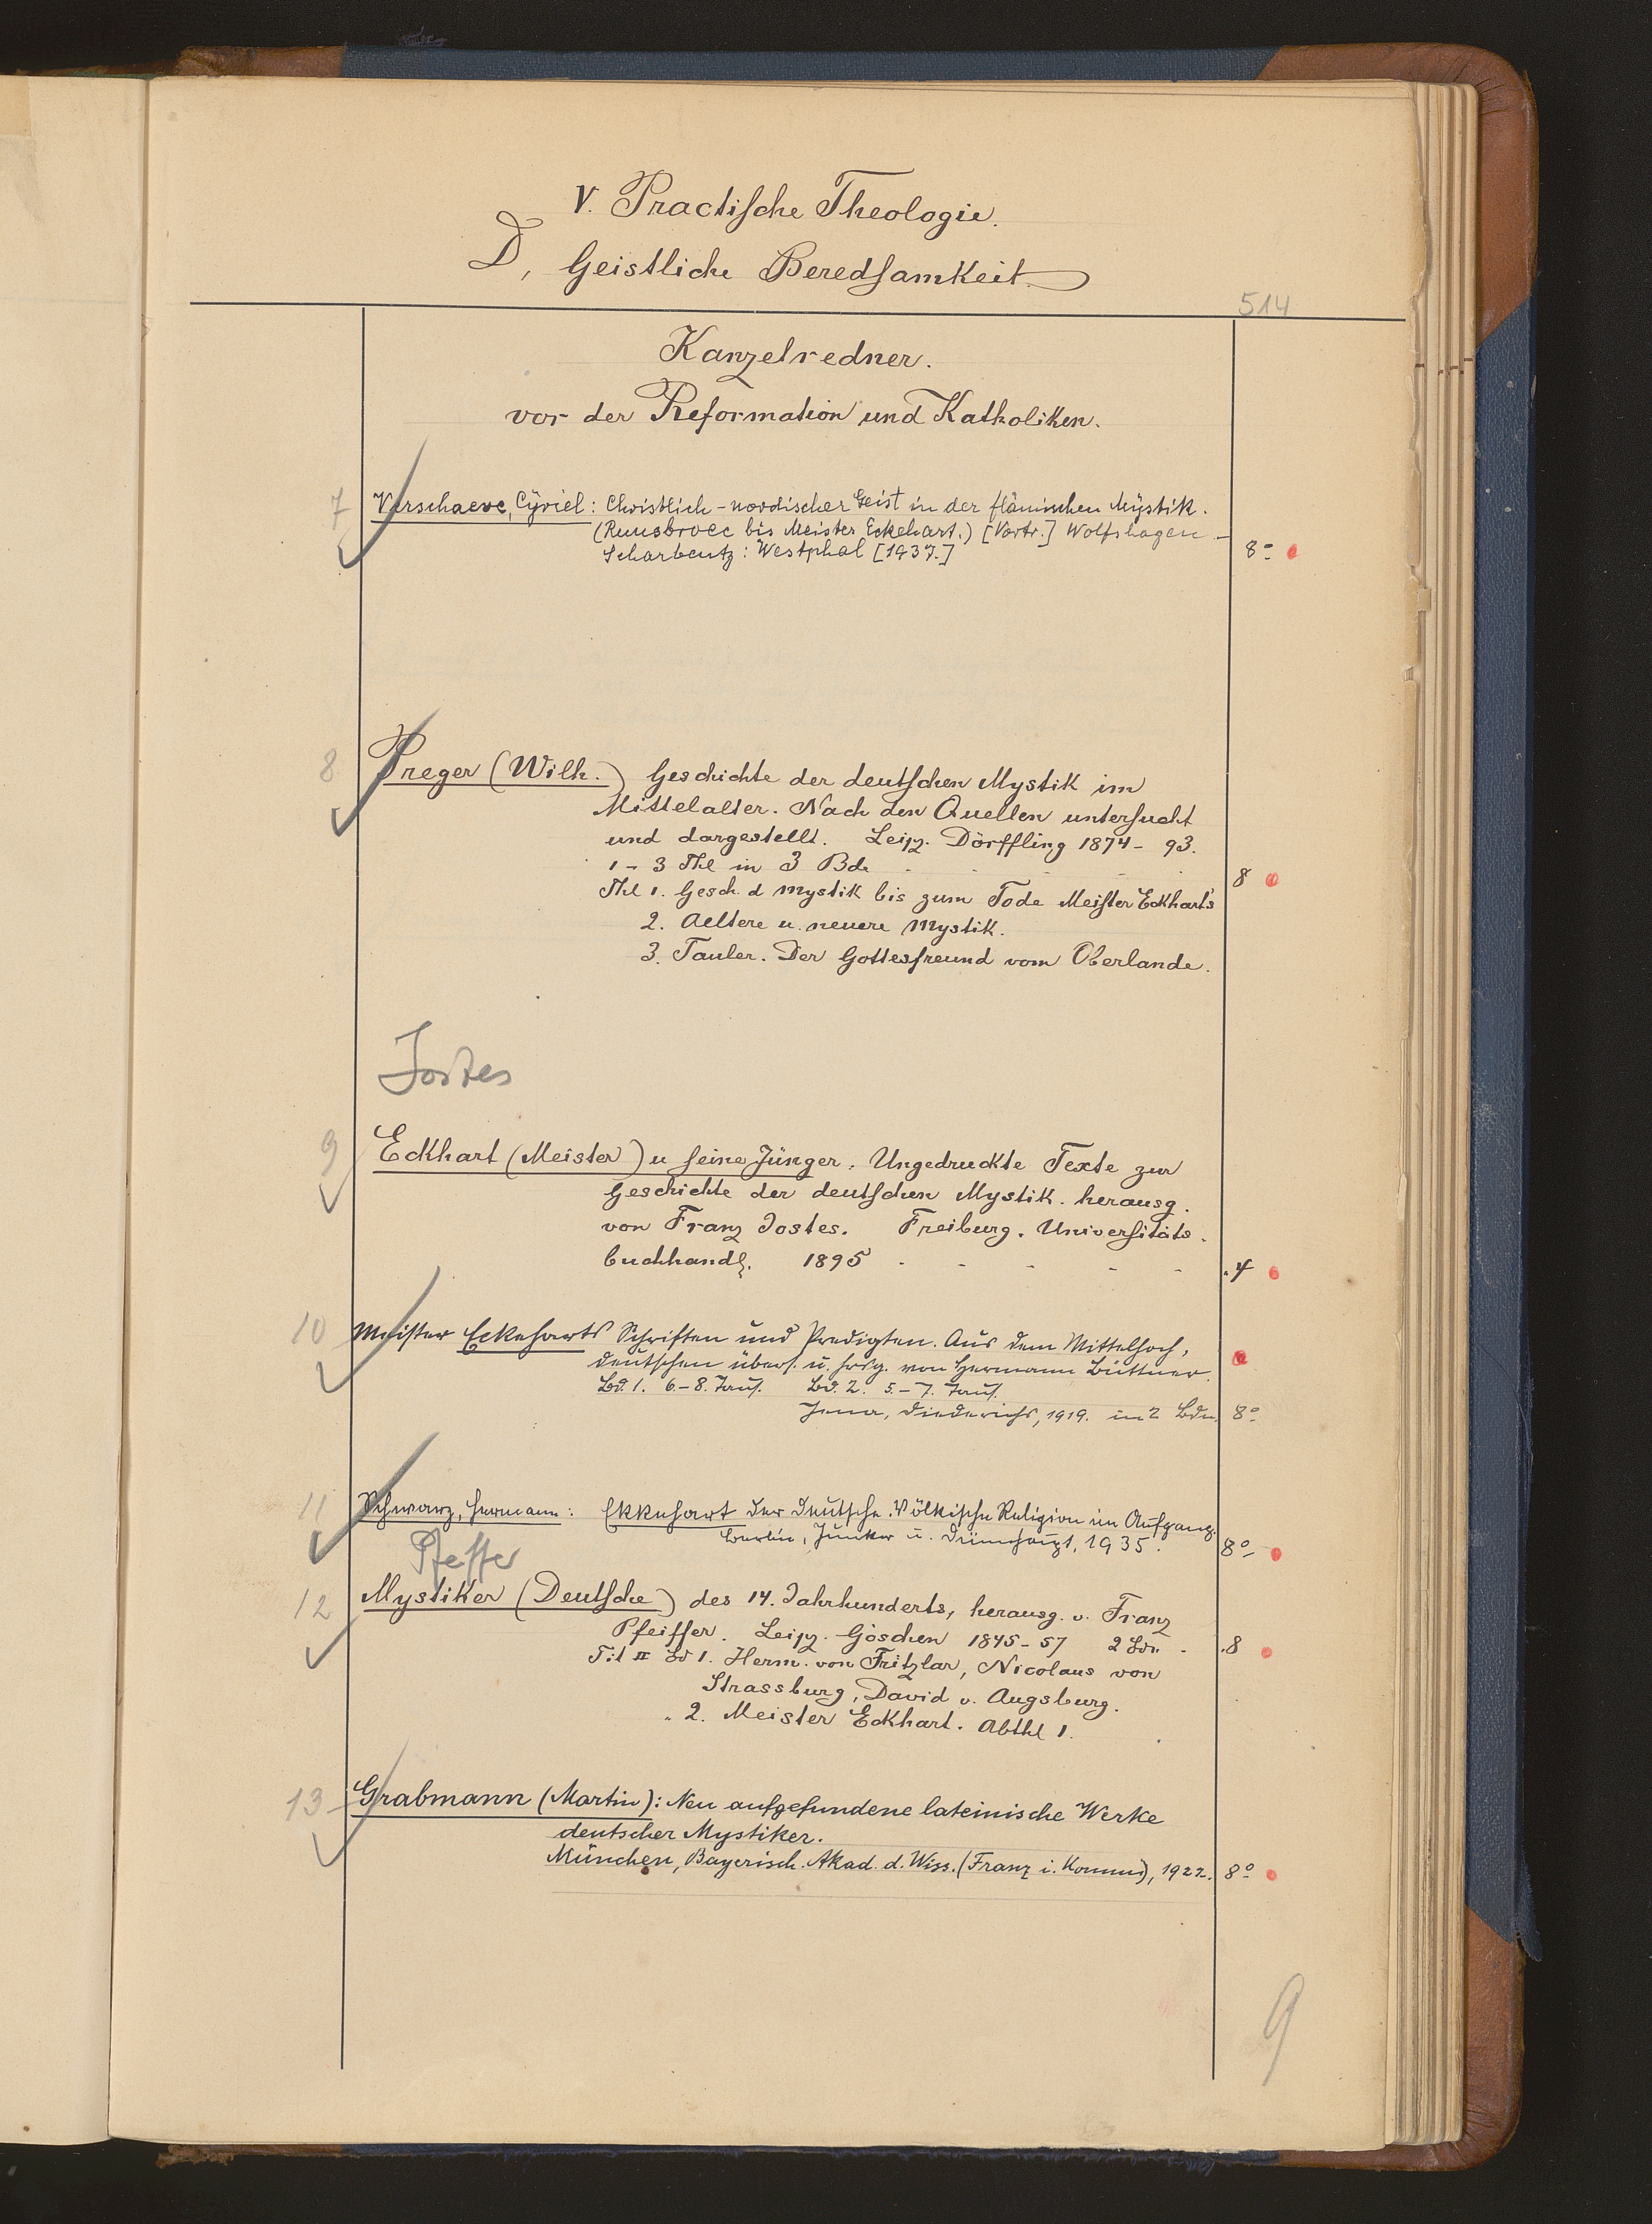 V. Practische Theologie.
D, Geistliche Beredsamkeit
514
Kanzelredner.
vor der Reformation und Katholiken.
7 Verschaeve, Cyriel: Christlich-nordischer Geist in der flämischen Mystik.
(Ruusbroec bis Meister Eckehart.) [Vortr.] Wolfshagen-
Scharbeutz: Westphal [1937.] 8°
8 Preger (Wilh.) Geschichte der deutschen Mystik im
Mittelalter. Nach den Quellen untersucht
und dargestellt. Leipz. Dörffling 1874-93.
1-3 Thl in 3 Bde 8
Thl 1. Gesch. d Mystik bis zum Tode Meister Eckhart's
2. Aeltere u. neuere Mystik.
3. Tauler. Der Gottesfreund vom Oberlande.
Jostes
9 Eckhart (Meister) u seine Jünger. Ungedruckte Texte zur
Geschichte der deutschen Mystik. herausg.
von Franz Jostes. Freiburg. Universitäts-
buchhandl. 1895 . - - - - . 4
10 Meister Eckeharts Schriften und Predigten. Aus dem Mittelhoch-
deutschen übers. u. hrsg. von Hermann Büttner.
Bd. 1. 6.-8. Taus. Bd. 2. 5.-7. Taus.
Jena, Diederichs, 1919. in 2 Bdn. 8°
11 Schwarz, Hermann: Ekkehart der Deutsche. Völkische Religion im Aufgang.
Berlin, Junker u. Dünnhaupt, 1935. 8°
Pfeiffer
12 Mystiker (Deutsche) des 14. Jahrhunderts, herausg. v. Franz
Pfeiffer. Leipz. Göschen 1845-57 2 Bde. - .8
Tit II Bd 1. Herm. von Fritzlar, Nicolaus von
Strassburg, David v. Augsburg.
" 2. Meister Eckhart. Abthl 1.
13 Grabmann (Martin): Neu aufgefundene lateinische Werke
deutscher Mystiker.
München, Bayerisch. Akad. d. Wiss. (Franz i. Komm.), 1922. 8°
9